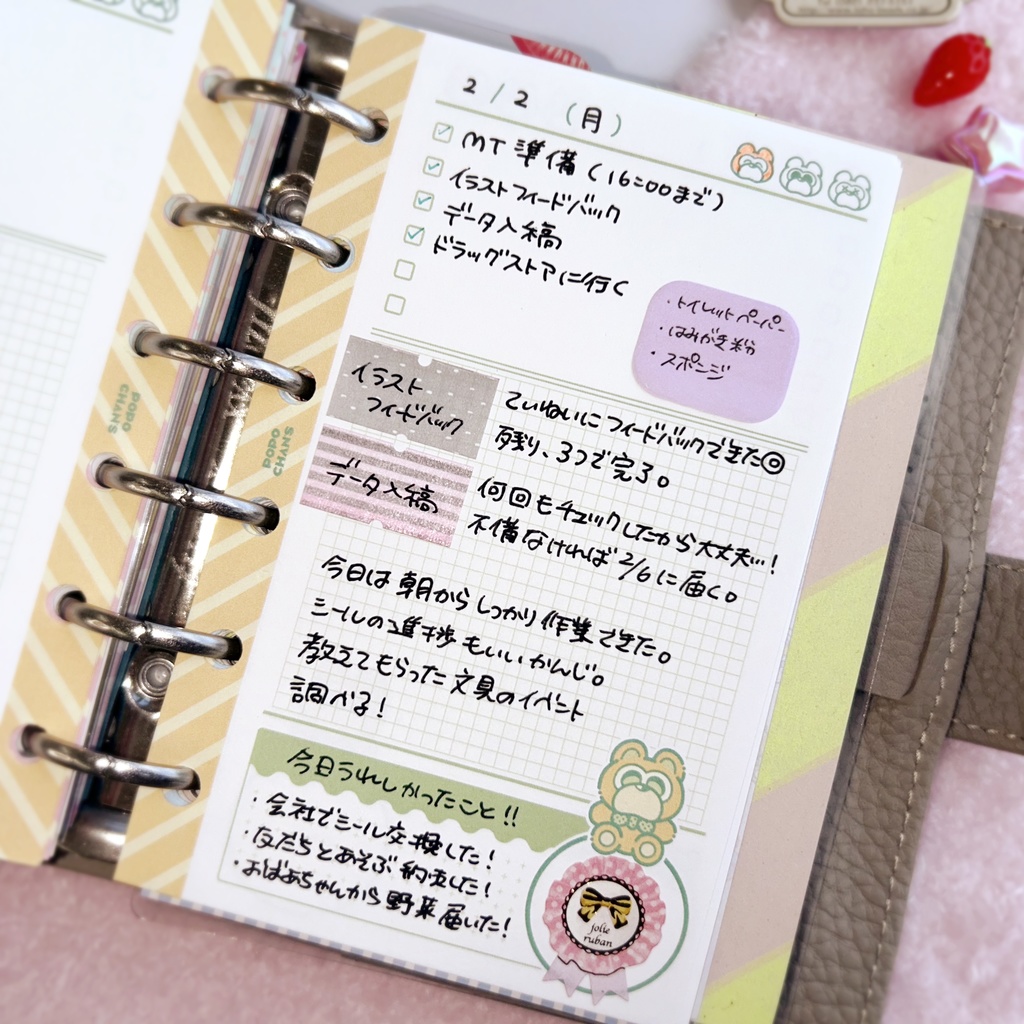 2/2 (月)
MT準備 (16:00まで)
イラストフィードバック
データ入稿
ドラッグストアに行く
・トイレットペーパー
・はみがき粉
・スポンジ
イラスト
フィードバック
ていねいにフィードバックできた◎
残り、3つで完了。
データ入稿
何回もチェックしたから大丈夫…!
不備なければ2/6に届く。
今日は朝からしっかり作業できた。
シールの進捗もいいかんじ。
教えてもらった文具のイベント
調べる!
今日うれしかったこと!!
・会社でシール交換した!
・友だちとあそぶ約束した!
・おばあちゃんから野菜届いた!
jolie
ruban
PODO
CHANS
PODO
CHANS